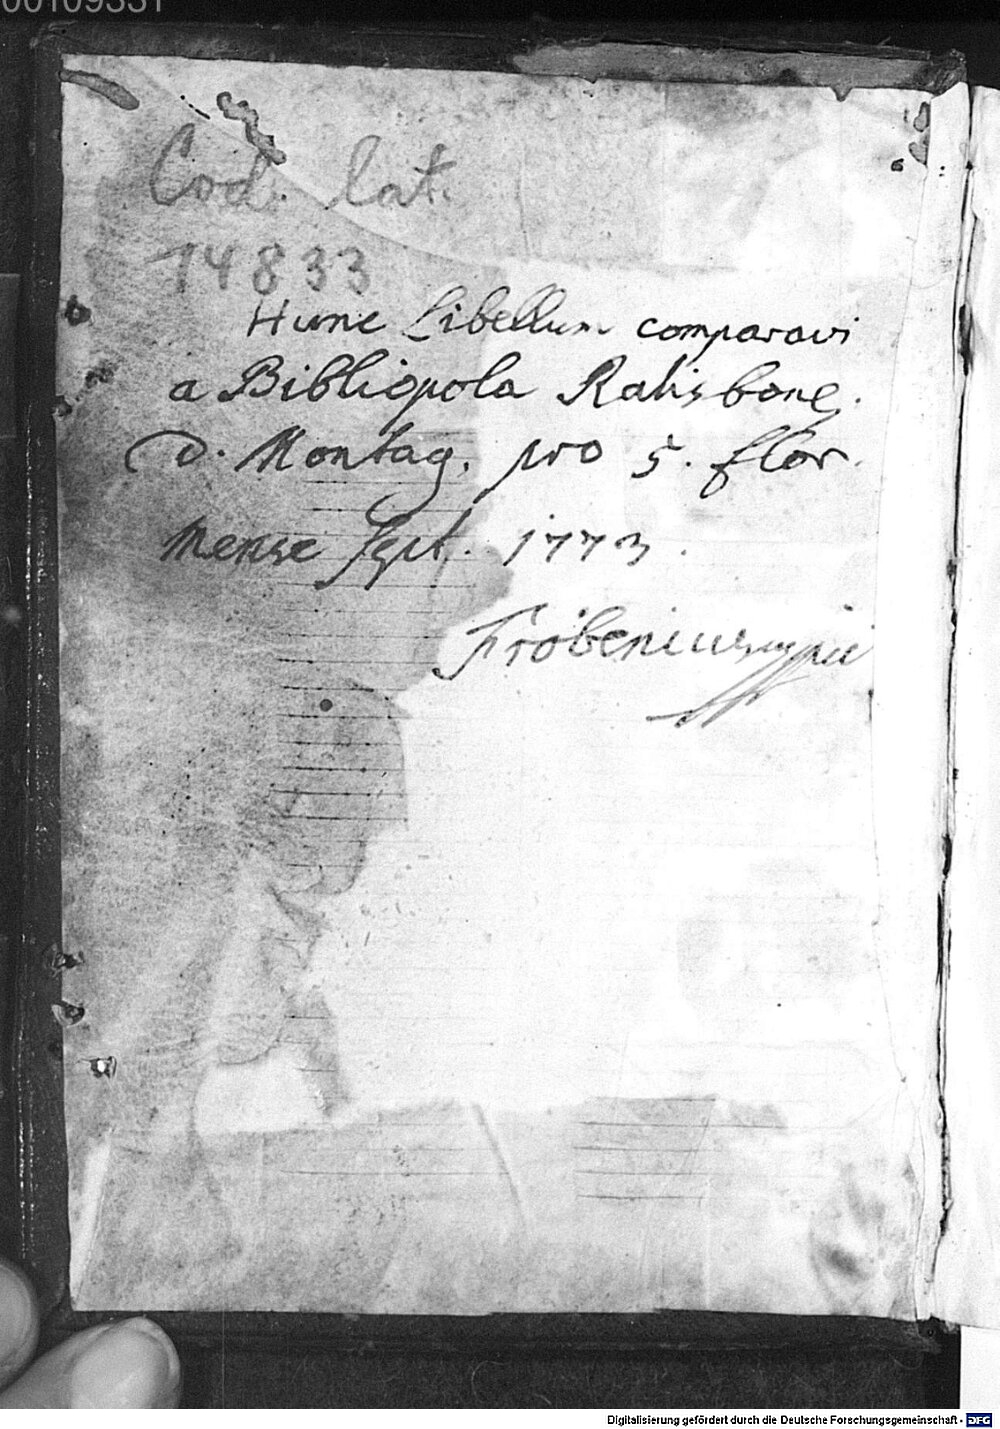 00109331
Cod. lat.
14833
Hunc Libellum comparavi
a Bibliopola Ratisbone.
D. Montag. pro 5. flor.
Mense Sept. 1773.
Frobenius
Digitalisierung gefördert durch die Deutsche Forschungsgemeinschaft - DFG